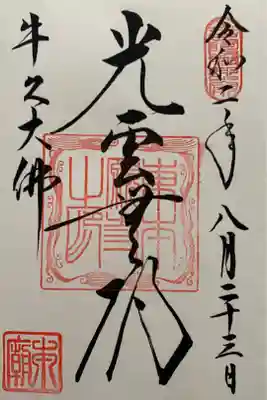 令和二年 八月二十三日
光雲無碍
牛久大佛